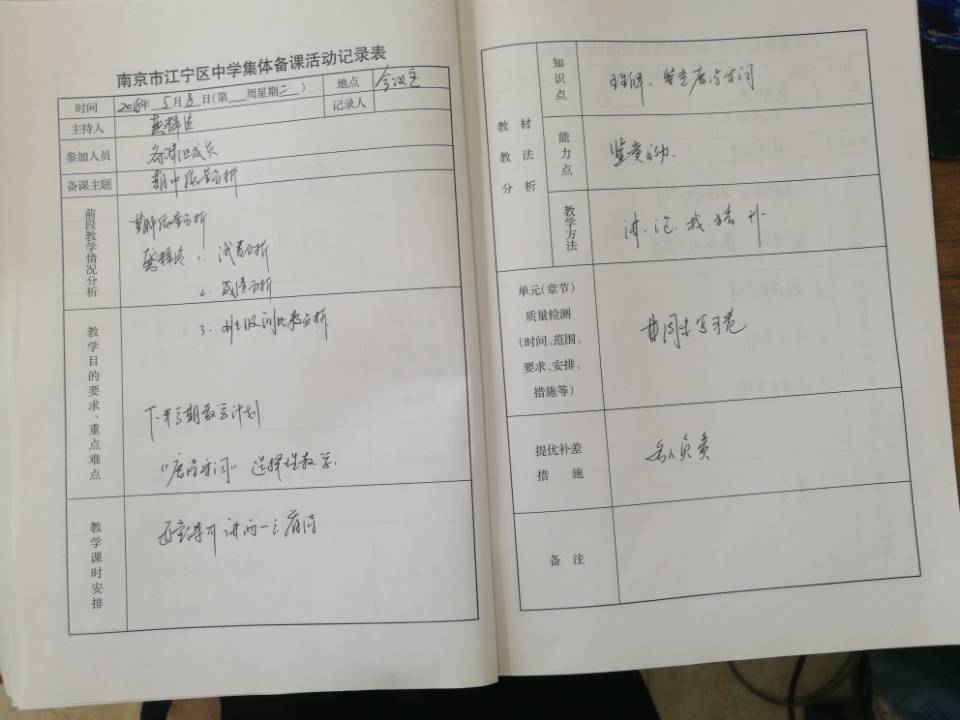 南京市江宁区中学集体备课活动记录表
时间 2018年5月8日(第 周星期二) 地点 会议室
主持人 记录人
参加人员 备课组成员
备课主题 期中质量分析
前段教学情况分析
期中质量分析
1. 试卷分析
2. 成绩分析
3. 班级对比分析
教学目的要求、重点难点
下半学期教学计划
“唐诗宋词” 选择性教学
教学课时安排
讲两一三首诗
教材教法分析
知识点
理解、鉴赏唐诗宋词
能力点
鉴赏
教学方法
讲、
单元(章节)
质量检测
(时间、范围、
要求、安排、
措施等)
提优补差
措施
负责
备注